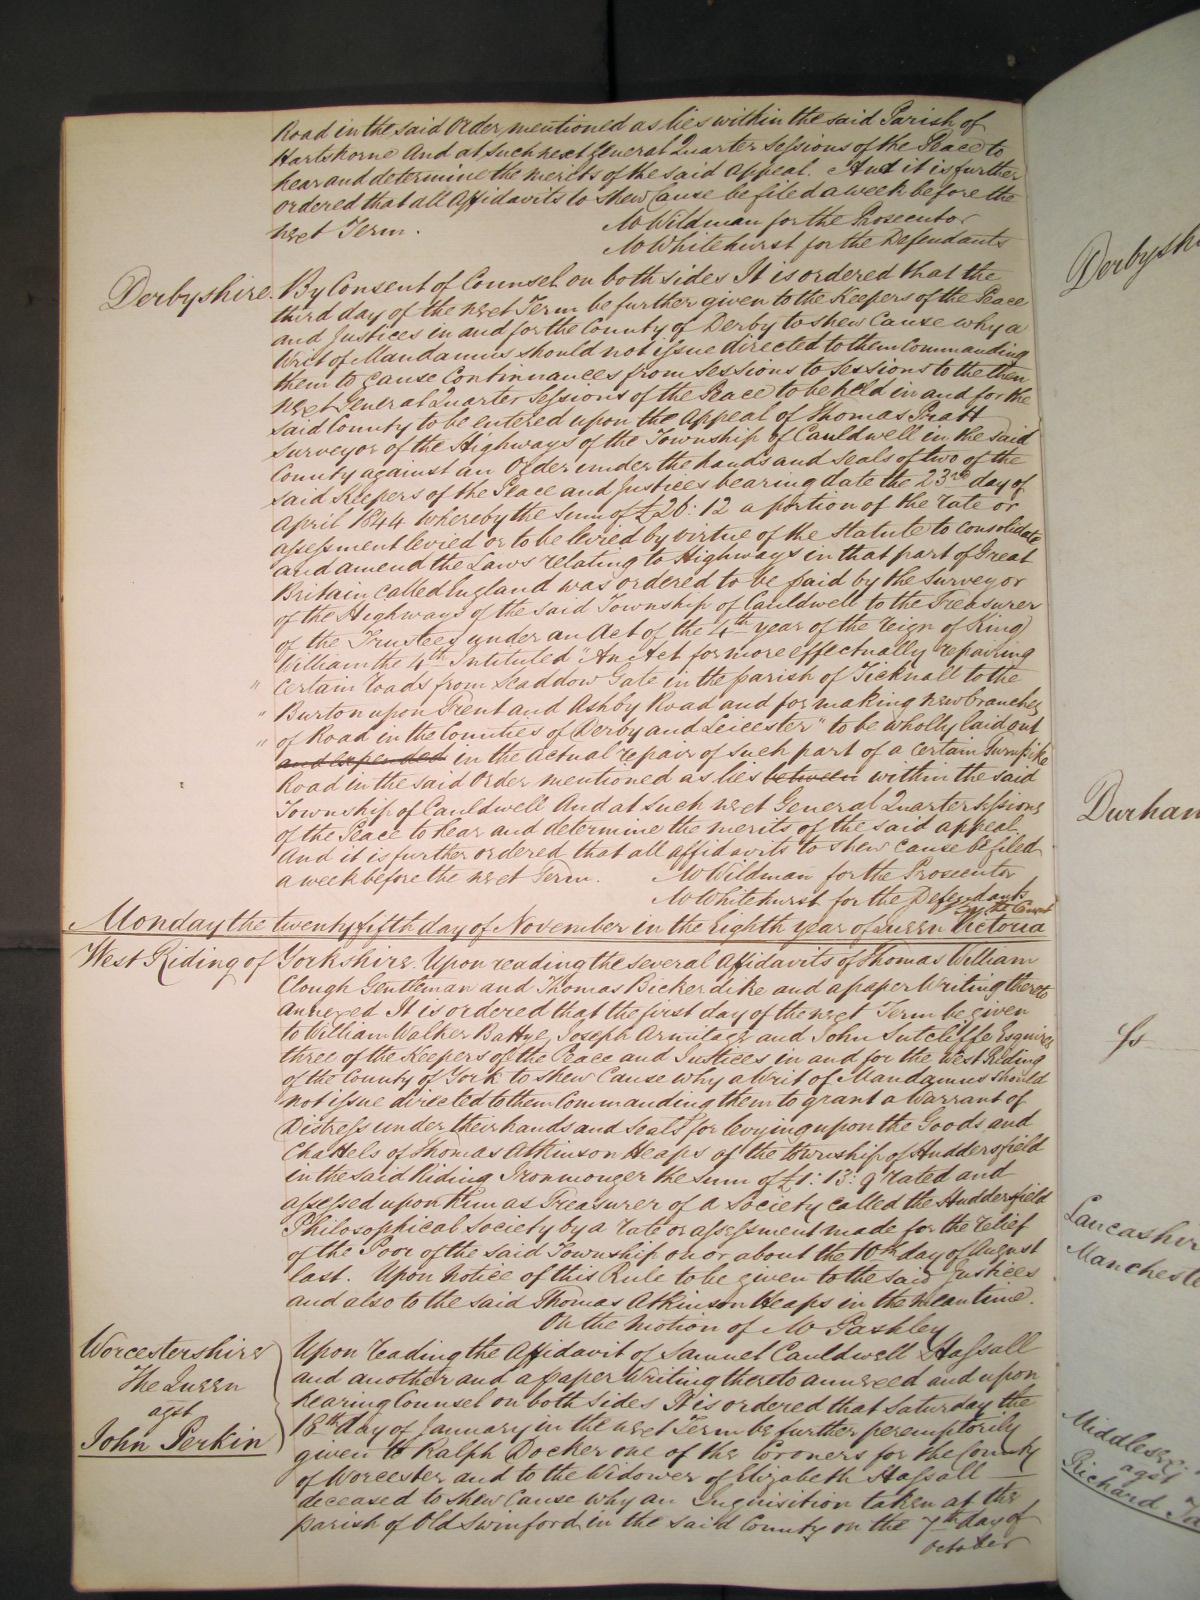 Road in the said Order mentioned as lies within the said Parish of
Hartshorne And at such next General Quarter Sessions of the Peace to
hear and determine the merits of the said Appeal. And it is further
ordered that all Affidavits to shew Cause be filed a week before the
next Term.
Mr Wildman for the Prosecutor
Mr Whitehurst for the Defendants
Derbyshire. By Consent of Counsel on both sides It is ordered that the
third day of the next Term be further given to the Keepers of the Peace
and Justices in and for the County of Derby to shew Cause why a
Writ of Mandamus should not issue directed to them Commanding
them to cause Continuances from Sessions to Sessions to the then
next General Quarter Sessions of the Peace to be held in and for the
said County to be entered upon the Appeal of Thomas Pratt
Surveyor of the Highways of the Township of Cauldwell in the said
County against an Order under the hands and Seals of two of the
said Keepers of the Peace and Justices bearing date the 23rd day of
April 1844 whereby the Sum of £26: 12 a portion of the rate or
assessment levied or to be levied by virtue of the Statute to consolidate
and amend the Laws relating to Highways in that part of Great
Britain called England was ordered to be paid by the Surveyor
of the Highways of the said Township of Cauldwell to the Treasurer
of the Trustees under an Act of the 4th year of the reign of King
William the 4th Intituled "An Act for more effectually repairing
" Certain roads from Scaddow Gate in the parish of Ticknall to the
" Burton upon Trent and Ashby Road and for making new branches
" of Road in the Counties of Derby and Leicester" to be wholly laid out
and expended in the actual repair of such part of a certain Turnpike
Road in the said Order mentioned as lies between within the said
Township of Cauldwell And at such next General Quarter Sessions
of the Peace to hear and determine the merits of the said appeal.
And it is further ordered that all affidavits to shew cause be filed
a week before the next Term.
Mr Wildman for the Prosecutor
Mr Whitehurst for the Defendants
By the Court
Monday the twenty fifth day of November in the Eighth year of Queen Victoria
West Riding of Yorkshire. Upon reading the several Affidavits of Thomas William
Clough Gentleman and Thomas Bickerdike and a paper Writing thereto
annexed It is ordered that the first day of the next Term be given
to William Walker Battye, Joseph Armitage and John Sutcliffe Esquires
three of the Keepers of the Peace and Justices in and for the West Riding
of the County of York to shew Cause why a Writ of Mandamus should
not issue directed to them Commanding them to grant a Warrant of
Distress under their hands and Seals for levying upon the Goods and
Chattels of Thomas Atkinson Heaps of the township of Huddersfield
in the said Riding Ironmonger the sum of £1: 13: 9 rated and
assessed upon him as Treasurer of a Society called the Huddersfield
Philosophical Society by a rate or assessment made for the relief
of the Poor of the said Township on or about the 10th day of August
last. Upon notice of this Rule to be given to the said Justices
and also to the said Thomas Atkinson Heaps in the meantime.
On the motion of Mr Pashley
Worcestershire
The Queen
agst
John Perkin
Upon reading the Affidavit of Samuel Cauldwell Hassall
and another and a paper Writing thereto annexed and upon
hearing Counsel on both sides It is ordered that Saturday the
18th day of January in the next Term be further peremptorily
given to Ralph Docker one of the Coroners for the County
of Worcester and to the Widower of Elizabeth Hassall
deceased to shew Cause why an Inquisition taken at the
parish of Old Swinford in the said County on the 7th day of
October
Derbysh
Durham
Ss
Lancashir
Mancheste
Middlesex
agst
Richard